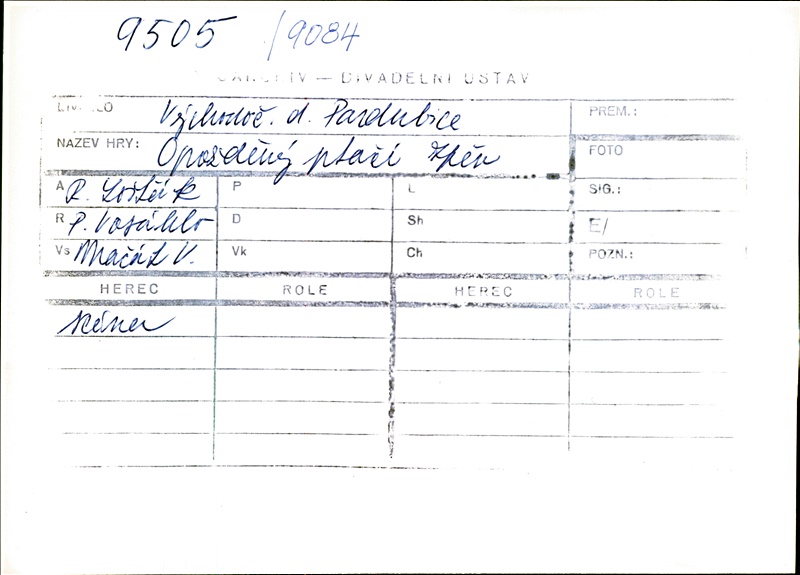 9505 /9084
— DIVADELNÍ ÚSTAV
Východoč. d. Pardubice PREM.:
NÁZEV HRY: Opožděný ptačí zpěv FOTO
A R. Lošťák P L SIG.:
R P. Vosáhlo D Sh E/
Vs Mačát V. Vk Ch POZN.:
HEREC ROLE HEREC ROLE
scéna